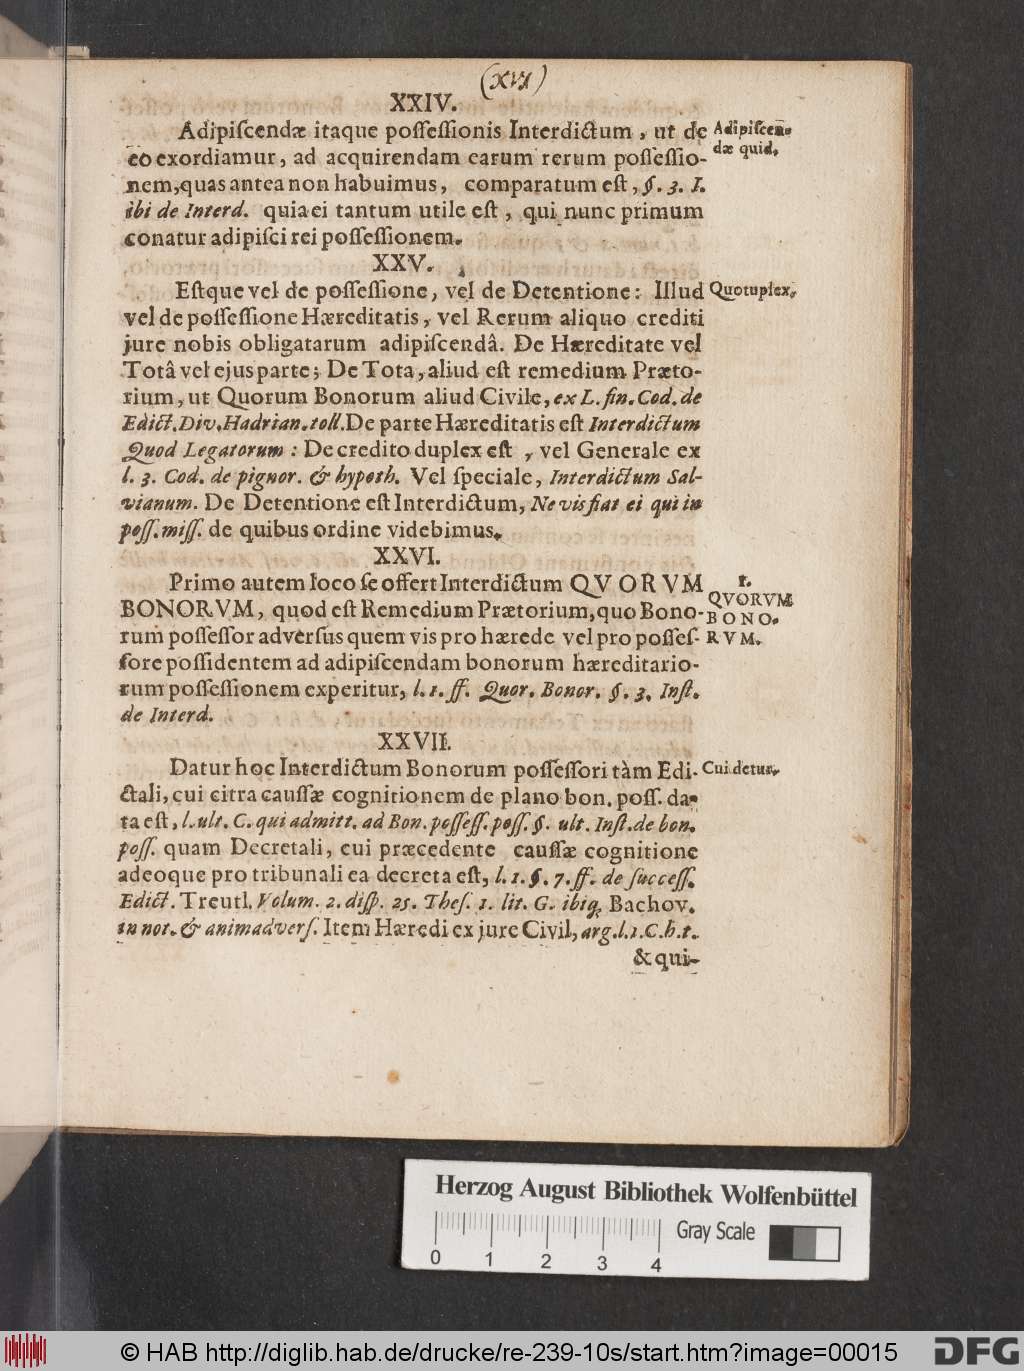 (xvi)
XXIV.
Adipiſcendæ itaque poſſeſſionis Interdictum, ut de
eo exordiamur, ad acquirendam earum rerum poſſeſſio-
nem, quas antea non habuimus, comparatum eſt, §. 3. I.
ibi de Interd. quia ei tantum utile eſt, qui nunc primum
conatur adipiſci rei poſſeſſionem.
Adipiſcen-
dæ quid.
XXV.
Eſtque vel de poſſeſſione, vel de Detentione: Illud
vel de poſſeſſione Hæreditatis, vel Rerum aliquo crediti
jure nobis obligatarum adipiſcendâ. De Hæreditate vel
Totâ vel ejus parte; De Tota, aliud eſt remedium Præto-
rium, ut Quorum Bonorum aliud Civile, ex L. fin. Cod. de
Edict. Div. Hadrian. toll. De parte Hæreditatis eſt Interdictum
Quod Legatorum: De credito duplex eſt, vel Generale ex
l. 3. Cod. de pignor. & hypoth. Vel ſpeciale, Interdictum Sal-
vianum. De Detentione eſt Interdictum, Ne vis fiat ei qui in
poſſ. miſſ. de quibus ordine videbimus.
Quotuplex.
XXVI.
Primo autem loco ſe offert Interdictum QVORVM
BONORVM, quod eſt Remedium Prætorium, quo Bono-
rum poſſeſſor adverſus quem vis pro hærede vel pro poſſeſ-
ſore poſſidentem ad adipiſcendam bonorum hæreditario-
rum poſſeſſionem experitur, l. 1. ff. Quor. Bonor. §. 3. Inſt.
de Interd.
1.
QVORVM
BONO-
RVM.
XXVII.
Datur hoc Interdictum Bonorum poſſeſſori tàm Edi-
ctali, cui citra cauſſæ cognitionem de plano bon. poſſ. da-
ta eſt, l. ult. C. qui admitt. ad Bon. poſſeſſ. poſſ. §. ult. Inſt. de bon.
poſſ. quam Decretali, cui præcedente cauſſæ cognitione
adeoque pro tribunali ea decreta eſt, l. 1. §. 7. ff. de ſucceſſ.
Edict. Treutl. Volum. 2. diſp. 25. Theſ. 1. lit. G. ibiq; Bachov.
in not. & animadverſ. Item Hæredi ex jure Civil, arg. l. 1. C. h. t.
& qui-
Cui detur.
Herzog August Bibliothek Wolfenbüttel
Gray Scale
0 1 2 3 4
© HAB http://diglib.hab.de/drucke/re-239-10s/start.htm?image=00015
DFG